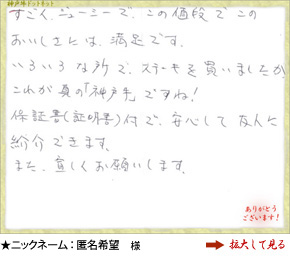 神戸牛ドットネット
すごく、ジューシーで、この価段でこの
おいしさとは、満足です。
いろいろな所で、ステーキを買いましたが
これが真の「神戸牛」ですね!
保証書(証明書)付で、安心して友人に
紹介できます。
また、宜しくお願いします。
ありがとう
ございます!
★ニックネーム:匿名希望 様
拡大して見る